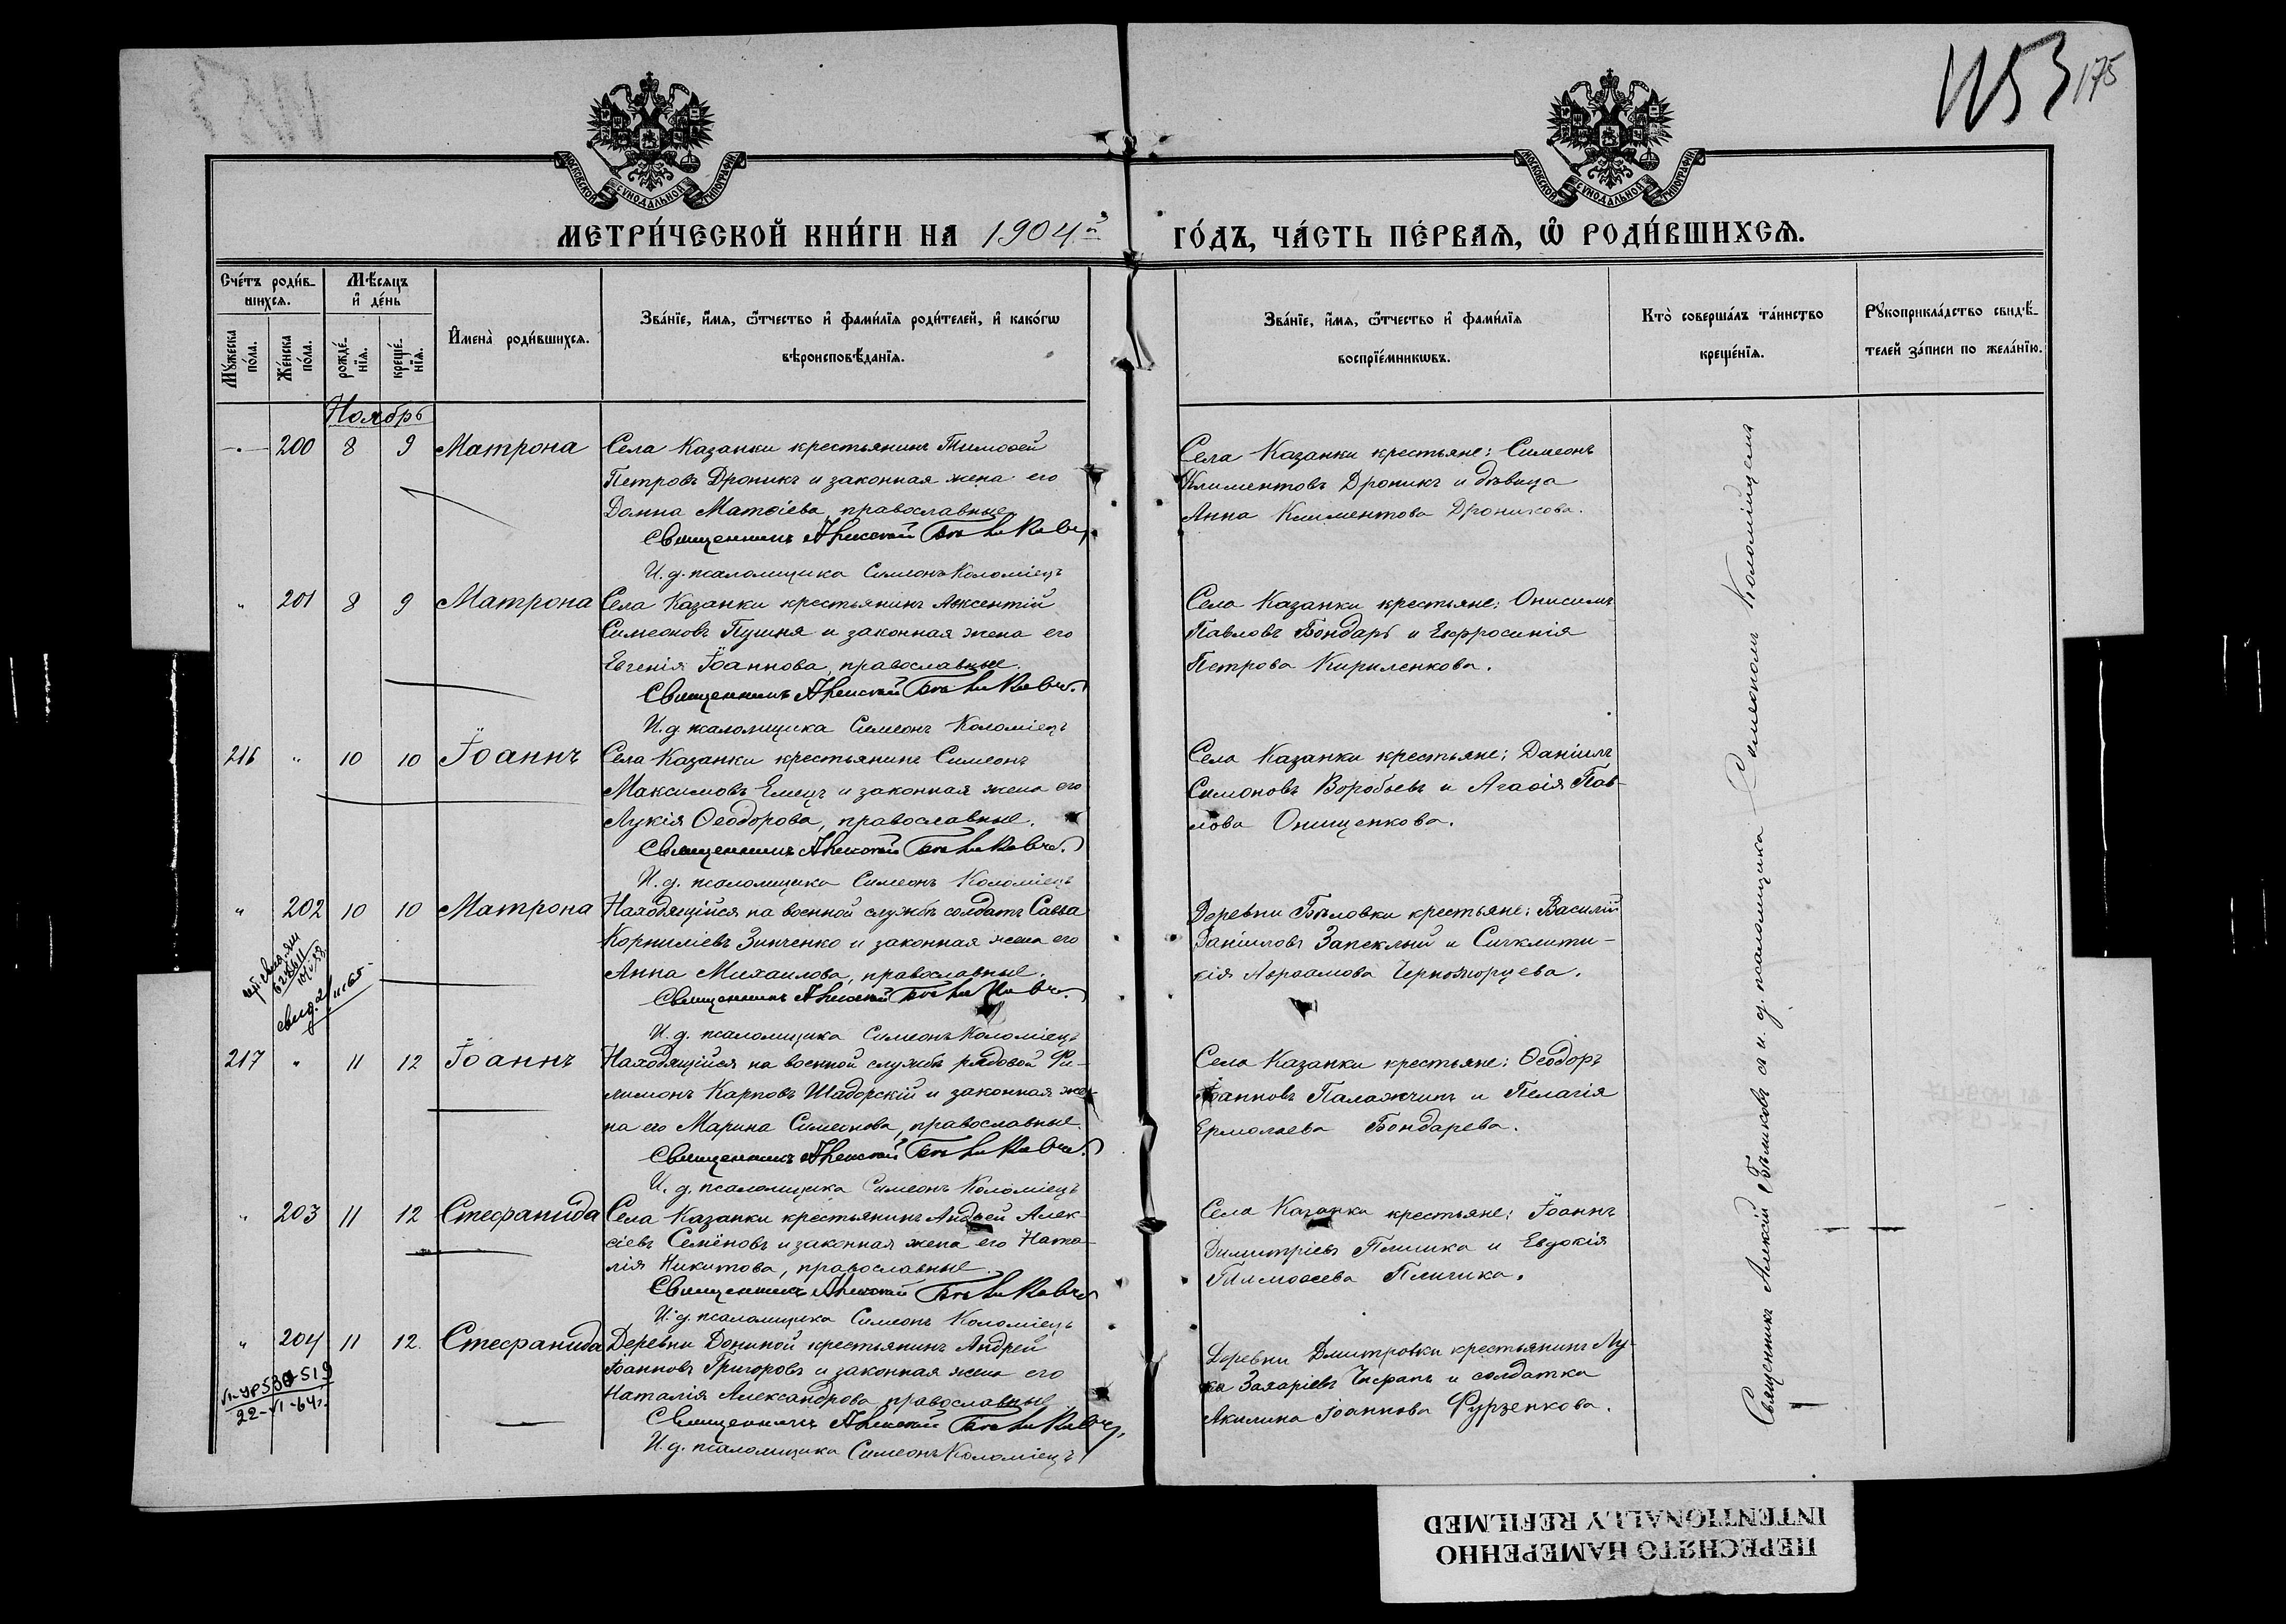 1153
175
МОСКОВСКОЙ СѴНОДАЛЬНОЙ ТИПОГРАФІИ
МОСКОВСКОЙ СѴНОДАЛЬНОЙ ТИПОГРАФІИ
МЕТРИ́ЧЕСКОЙ КНИ́ГИ НА 1904й
ГО́ДЪ, ЧА́СТЬ ПЕ́РВАѦ, Ѽ РОДИ́ВШИХСѦ.
Сче́тъ роди́в-
шихсѧ.
Мꙋ́жеска по́ла.
Же́нска по́ла.
Мѣ́сѧцъ
и҆ де́нь
рожде́-
нїѧ.
креще́-
нїѧ.
И҆мена̀ роди́вшихсѧ.
Зва́нїе, и҆́мѧ, ѻ҆́тчество и҆ фами́лїѧ роди́телей, и҆ како́гѡ
вѣроисповѣ́данїѧ.
Зва́нїе, и҆́мѧ, ѻ҆́тчество и҆ фами́лїѧ
воспрїе́мникѡвъ.
Кто̀ соверша́лъ та́инство
креще́нїѧ.
Рꙋкоприкла́дство свидѣ́-
телей за́писи по жела́нїю.
Ноябрь
200 8 9 Матрона
Села Казанки крестьянинъ Тимоѳей
Петровъ Дроникъ и законная жена его
Домна Матѳіева, православные.
Священникъ Алексій Бѣликовъ
И. д. псаломщика Симеонъ Коломіецъ
Села Казанки крестьяне: Симеонъ
Климентовъ Дроникъ и дѣвица
Анна Климентова Дроникова.
" 201 8 9 Матрона
Села Казанки крестьянинъ Авксентій
Симеоновъ Пушня и законная жена его
Евгенія Іоаннова, православные.
Священникъ Алексій Бѣликовъ
И. д. псаломщика Симеонъ Коломіецъ
Села Казанки крестьяне: Онисимъ
Павловъ Бондарь и Евфросинія
Петрова Кириленкова.
216 " 10 10 Іоаннъ
Села Казанки крестьянинъ Симеонъ
Максимовъ Емецъ и законная жена его
Лукія Ѳеодорова, православные.
Священникъ Алексій Бѣликовъ
И. д. псаломщика Симеонъ Коломіецъ
Села Казанки крестьяне: Даніилъ
Симоновъ Воробьевъ и Агаѳія Пав-
лова Онищенкова.
" 202 10 10 Матрона
Находящійся на военной службѣ солдатъ Савва
Корниліевъ Зинченко и законная жена его
Анна Михаилова, православные.
Священникъ Алексій Бѣликовъ
И. д. псаломщика Симеонъ Коломіецъ
Деревни Бѣловки крестьяне: Василій
Даніиловъ Запеклый и Синклити-
кія Авраамова Черноморцева.
217 " 11 12 Іоаннъ
Находящійся на военной службѣ рядовой Фи-
лимонъ Карповъ Шадорскій и законная же-
на его Марина Симеонова, православные.
Священникъ Алексій Бѣликовъ
И. д. псаломщика Симеонъ Коломіецъ
Села Казанки крестьяне: Ѳеодоръ
Іоанновъ Паламчинъ и Пелагія
Ермолаева Бондарева.
" 203 11 12 Стефанида
Села Казанки крестьянинъ Андрей Алек-
сіевъ Семёновъ и законная жена его Ната-
лія Никитова, православные.
Священникъ Алексій Бѣликовъ
И. д. псаломщика Симеонъ Коломіецъ
Села Казанки крестьяне: Іоаннъ
Димитріевъ и Евдокія
Тимоѳеева
" 204 11 12. Стефанида
Деревни Дониной крестьянинъ Андрей
Іоанновъ Григоровъ и законная жена его
Наталія Александрова, православные.
Священникъ Алексій Бѣликовъ
И. д. псаломщика Симеонъ Коломіецъ
Деревни Дмитровки крестьянинъ Лу-
ка Захаріевъ и солдатка
Акилина Іоаннова Фурзенкова.
22-VI-64г.
Священникъ Алексій Бѣликовъ съ и. д. псаломщика Симеономъ Коломійцемъ
ПЕРЕСНЯТО НАМЕРЕННО
INTENTIONALLY REFILMED